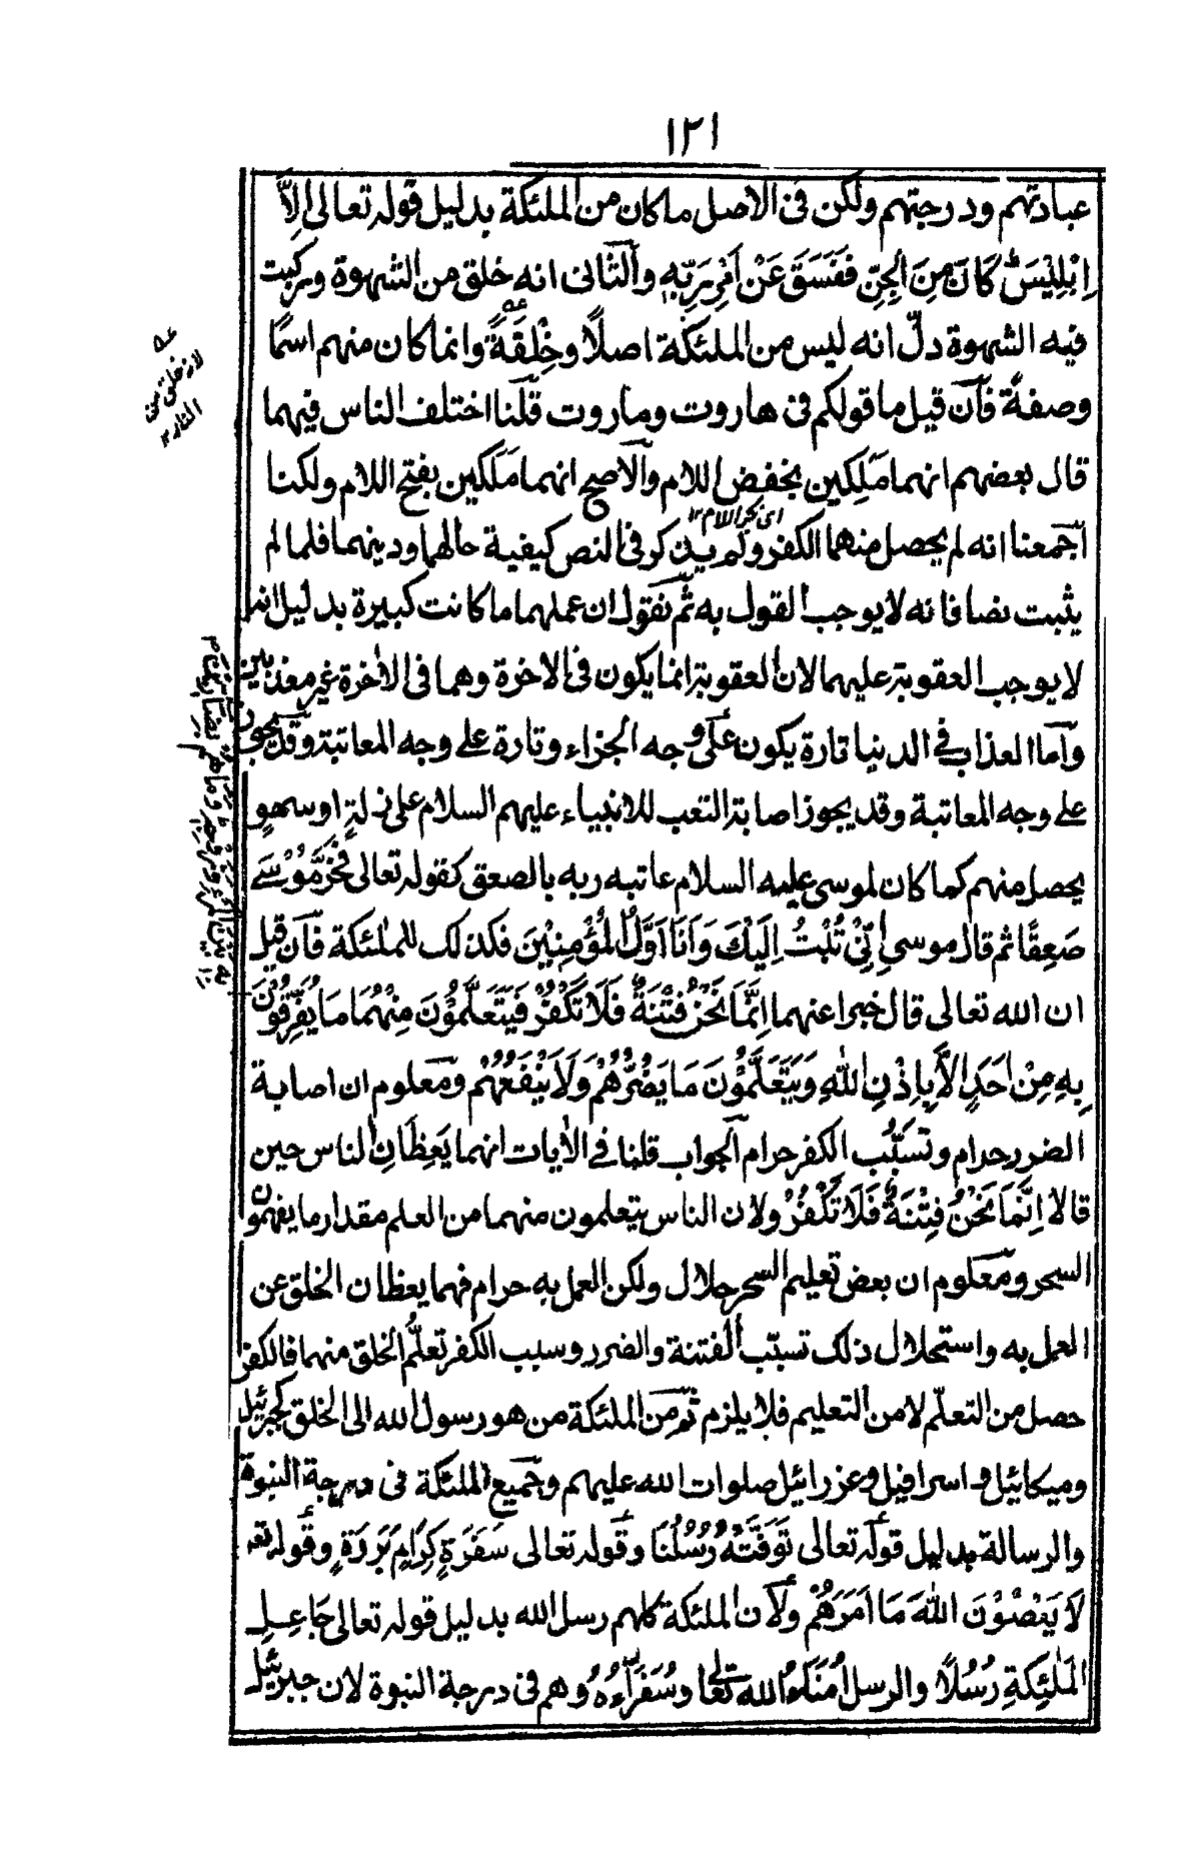 ١٢١
عبادتهم ودرجتهم ولكن فى الاصل ماكان من الملئكة بدليل قوله تعالى اِلَّا
اِبْلِيْسَ كَانَ مِنَ الْجِنِّ فَفَسَقَ عَنْ اَمْرِ رَبِّهٖ والثانى انه خلق من الشهوة وركبت
فيه الشهوة دلّ انه ليس من الملئكة اصلًا وخِلْقَةً وانما كان منهم اسمًا
وصفةً فآن قيل ما قولكم فى هاروت وماروت قلنا اختلف الناس فيهما
قال بعضهم انهما مَلِكين بخفض اللام والاصح انهما مَلَكين بفتح اللام ولكنا
اى بكسر اللام ١٢
اجمعنا انه لم يحصل منهما الكفر ولم يذكر فى النص كيفية حالهما ودينهما فلما لم
يثبت نصا فانه لا يوجب القول به ثم نقول ان عملهما ما كانت كبيرة بدليل انه
لا يوجب العقوبة عليهما لان العقوبة انما يكون فى الاخرة وهما فى الاٰخرة غير معذبين
وآما العذاب فى الدنيا تارة يكون على وجه الجزاء وتارة على وجه المعاتبة وقد يجوز
على وجه المعاتبة وقد يجوز اصابة التعب للانبياء عليهم السلام على زلةٍ او سهوٍ
يحصل منهم كما كان لموسى عليه السلام عاتبه ربه بالصعق كقوله تعالى فَخَرَّ مُوْسٰے
صَعِقًا ثم قال موسى اِنِّىْ تُبْتُ اِلَيْكَ وَاَنَا اَوَّلُ الْمُؤْمِنِيْنَ فكذلك للملئكة فآن قيل
ان الله تعالى قال خبرا عنهما اِنَّمَا نَحْنُ فِتْنَةٌ فَلَا تَكْفُرْ فَيَتَعَلَّمُوْنَ مِنْهُمَا مَا يُفَرِّقُوْنَ
بِهٖ مِنْ اَحَدٍ اِلَّا بِاِذْنِ اللّٰهِ وَيَتَعَلَّمُوْنَ مَا يَضُرُّهُمْ وَلَا يَنْفَعُهُمْ ومعلوم ان اصابة
الضرر حرام وتسبُّب الكفر حرام آلجواب قلنا فے الاٰيات انهما يَعِظَانِ الناس حين
قالا اِنَّمَا نَحْنُ فِتْنَةٌ فَلَا تَكْفُرْ ولان الناس يتعلمون منهما من العلم مقدار ما يفهمون
السحر ومعلوم ان بعض تعليم السحر حلال ولكن العمل به حرام فهما يعظان الخلق عن
العمل به واستحلال ذلك تسبّب الفتنة والضرر وسبب الكفر تعلُّم الخلق منهما فالكفر
حصل من التعلّم لا من التعليم فلا يلزم ثم من الملئكة من هو رسول الله الى الخلق كجبرئيل
وميكائيل واسرافيل وعزرائيل صلوات الله عليهم وجميع الملئكة فى درجة النبوة
والرسالة بدليل قوله تعالى تَوَفَّتْهُ رُسُلُنَا وقوله تعالى سَفَرَةٍ كِرَامٍ بَرَرَةٍ وقوله تعه
لَا يَعْصُوْنَ اللّٰهَ مَا اَمَرَهُمْ ولآن الملئكة كلهم رسل الله بدليل قوله تعالى جَاعِلِ
الْمَلٰٓئِكَةِ رُسُلًا والرسل اُمَنَاءُ الله تعالى وسُفَرَآءُهُ وهم فى درجة النبوة لان جبرئيل
لانه خلق من
النار ١٢